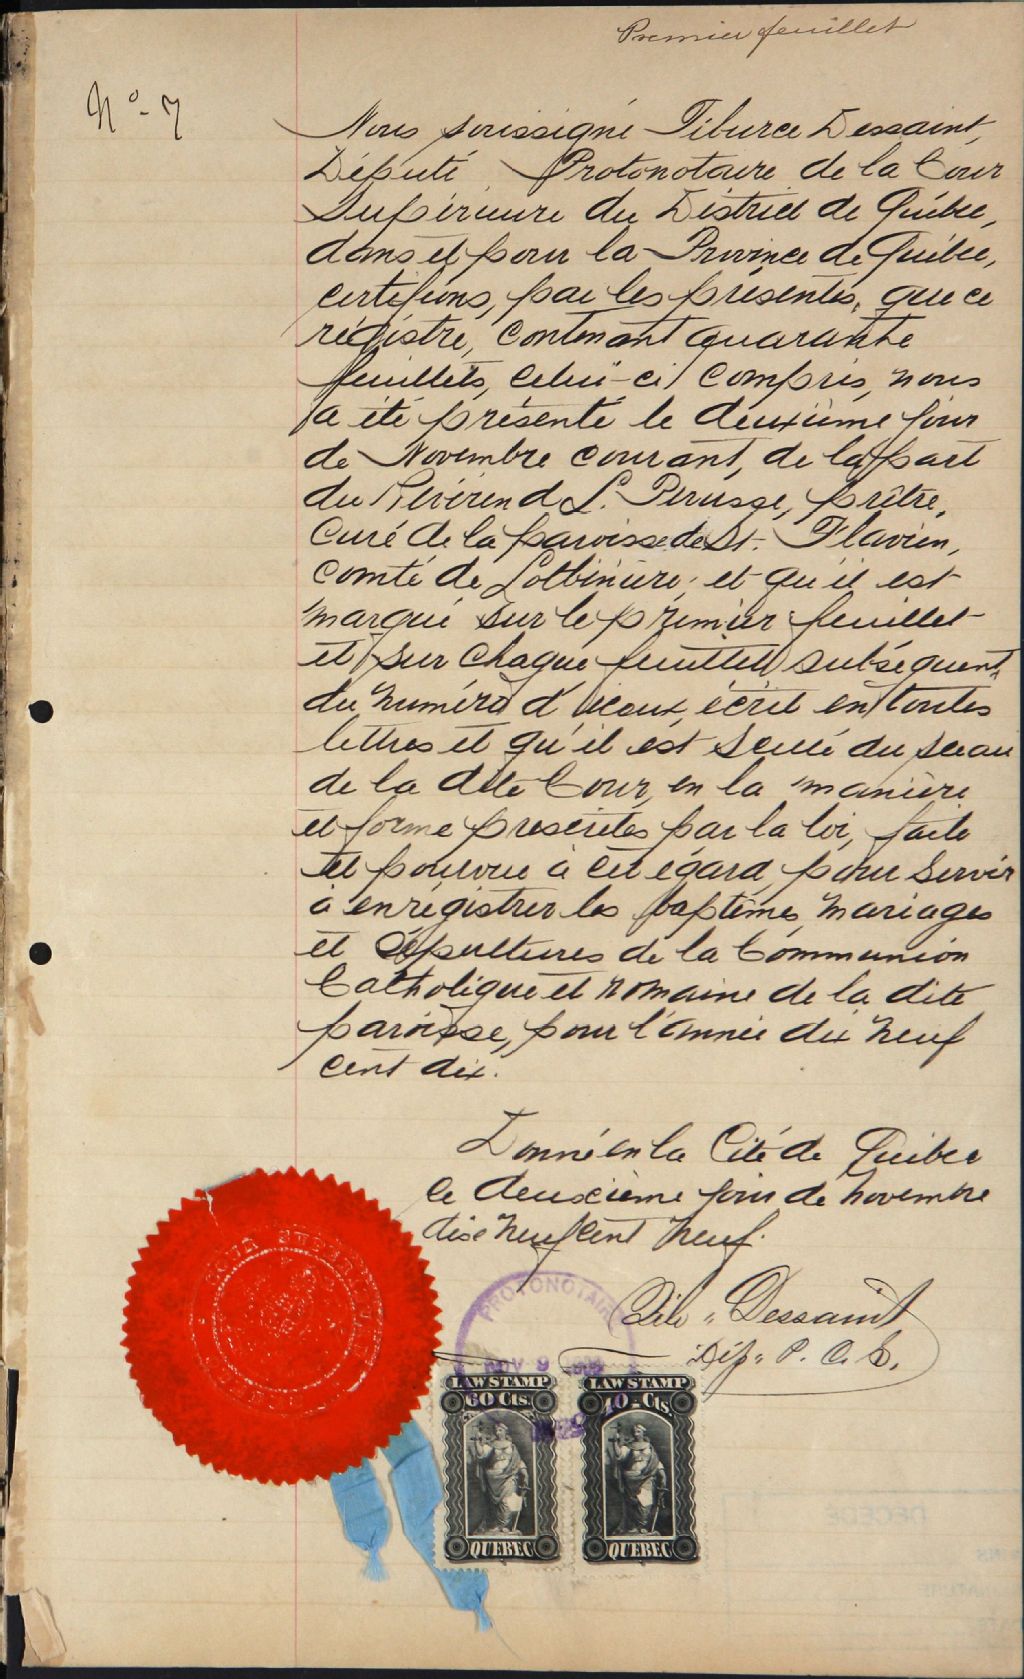 Premier feuillet
No - 7
Nous soussigné Tiburce Dessaint,
Député Protonotaire de la Cour
Supérieure du District de Québec,
dans et pour la Province de Québec,
certifions, par les présentes, que ce
régistre, contenant quarante
feuillets, celui-ci compris, nous
a été présenté le deuxième jour
de Novembre courant, de la part
du Révérend L. Perusse, prêtre,
Curé de la paroisse de St. Flavien,
Comté de Lotbinière, et qu'il est
marqué sur le premier feuillet
et sur chaque feuillet subséquent,
du numéro d'iceux, écrit en toutes
lettres et qu'il est scellé du sceau
de la dite Cour, en la manière
et forme prescrites par la loi, faite
et pourvue à cet égard, pour servir
à enrégistrer les baptêmes, mariages
et sépultures de la Communion
Catholique et romaine de la dite
paroisse, pour l'année dix neuf
cent dix.
Donné en la Cité de Québec
ce deuxième jour de novembre
dix neuf cent neuf.
Tib. Dessaint
Dép. P. C. S.
COUR SUPERIEURE
PROTONOTAIRE
NOV 9
LAW STAMP
60 Cts.
QUEBEC
LAW STAMP
40 Cts.
QUEBEC
DECEDE